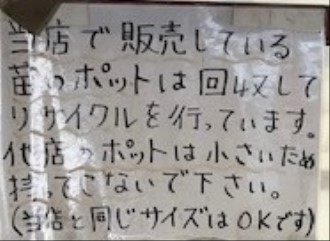 当店で販売している
苗のポットは回収して
リサイクルを行っています。
代店のポットは小さいため
持ってこないで下さい。
(当店と同じサイズはOKです)